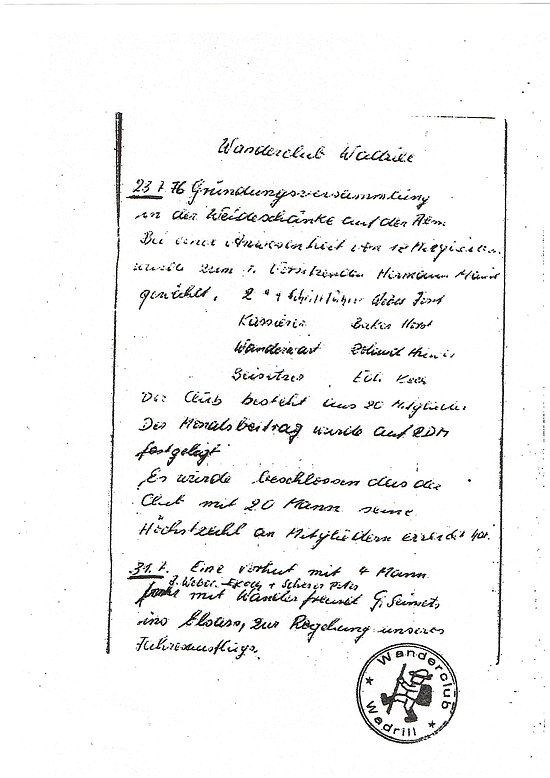 Wanderclub Wadrill
23.7.76 Gründungsversammlung
in der Weideschänke auf der Alm
Bei einer Anwesenheit von 18 Mitglieder
wurde zum 1. Vorsitzenden Hermann
gewählt. 2 " + Schriftführer Weber
Kassierer Horst
Wanderwart
Beisitzer Koch
Der Club besteht aus 20 Mitglieder
Der Monatsbeitrag wurde auf 2DM
festgelegt
Es wurde beschlossen das der
Club mit 20 Mann seine
Höchstzahl an Mitgliedern erreicht hat.
31.7. Eine vorhut mit 4 Mann
J. Weber + Scherer Peter
mit Wanderfreund G. Seimetz
ins Elsass, zur Regelung unseres
Jahresausflugs.
Wanderclub
Wadrill